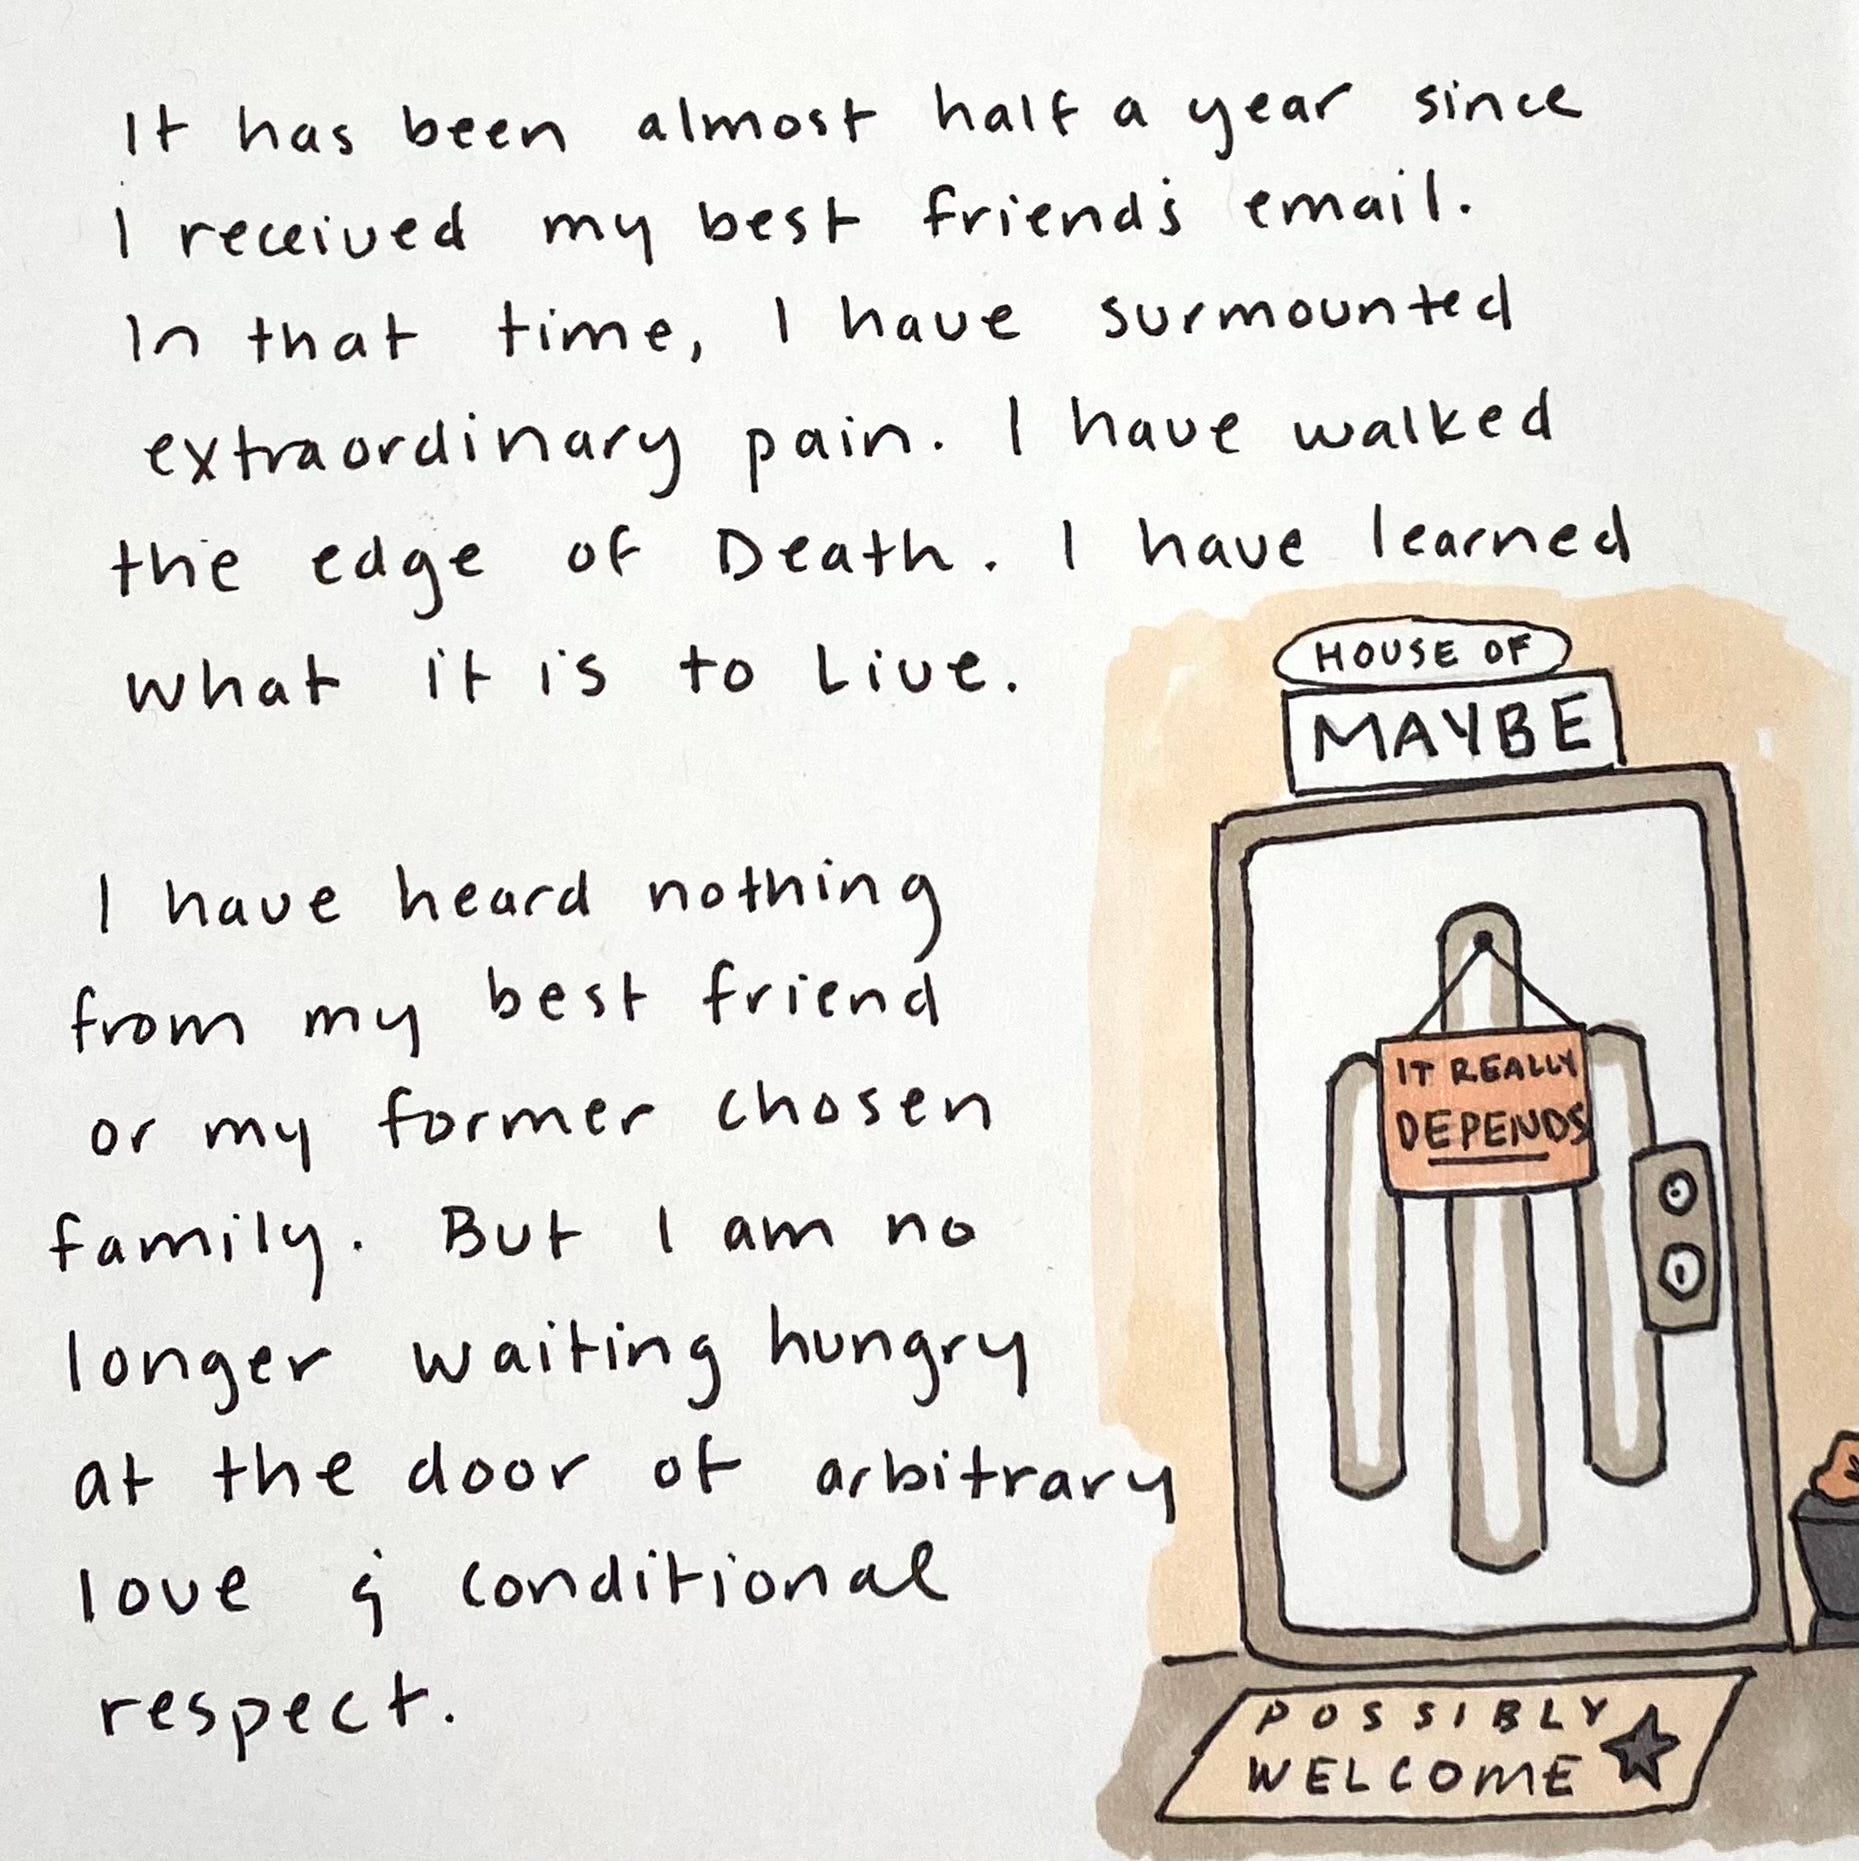 It has been almost half a year since
I received my best friend's email.
In that time, I have surmounted
extraordinary pain. I have walked
the edge of Death. I have learned
what it is to Live.
I have heard nothing
from my best friend
or my former chosen
family. But I am no
longer waiting hungry
at the door of arbitrary
love & conditional
respect.
HOUSE OF
MAYBE
IT REALLY
DEPENDS
POSSIBLY
WELCOME